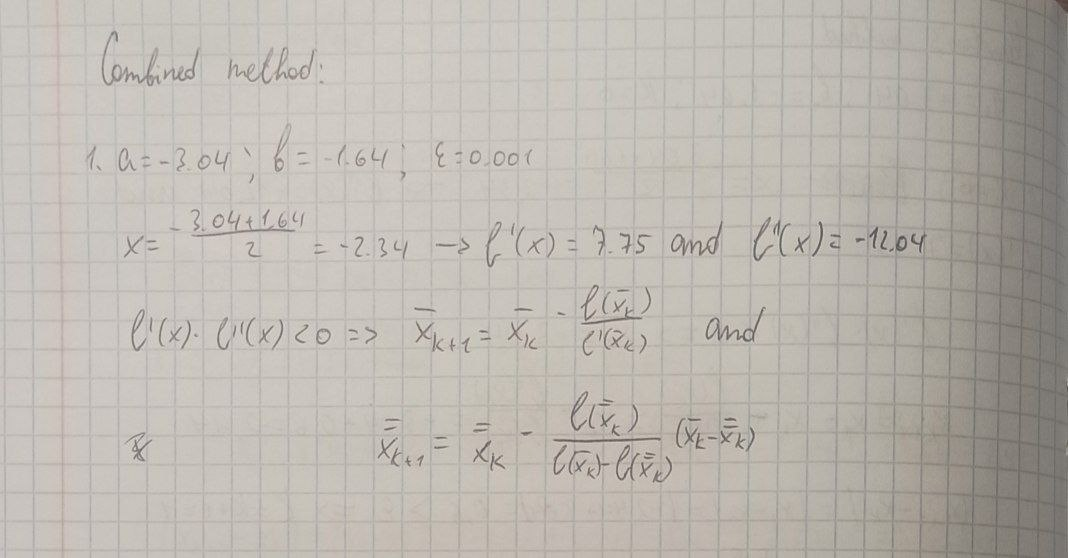 Combined method:
1. a = -3.04; b = -1.64; ε = 0.001
x = -(3.04+1.64)/2 = -2.34 → f'(x) = 7.75 and f''(x) = -12.04
f'(x) · f''(x) < 0 => x̄ₖ₊₁ = x̄ₖ - f(x̄ₖ)/f'(x̄ₖ) and
x̿ₖ₊₁ = x̿ₖ - f(x̿ₖ)/(f(x̄ₖ)-f(x̿ₖ)) (x̄ₖ-x̿ₖ)